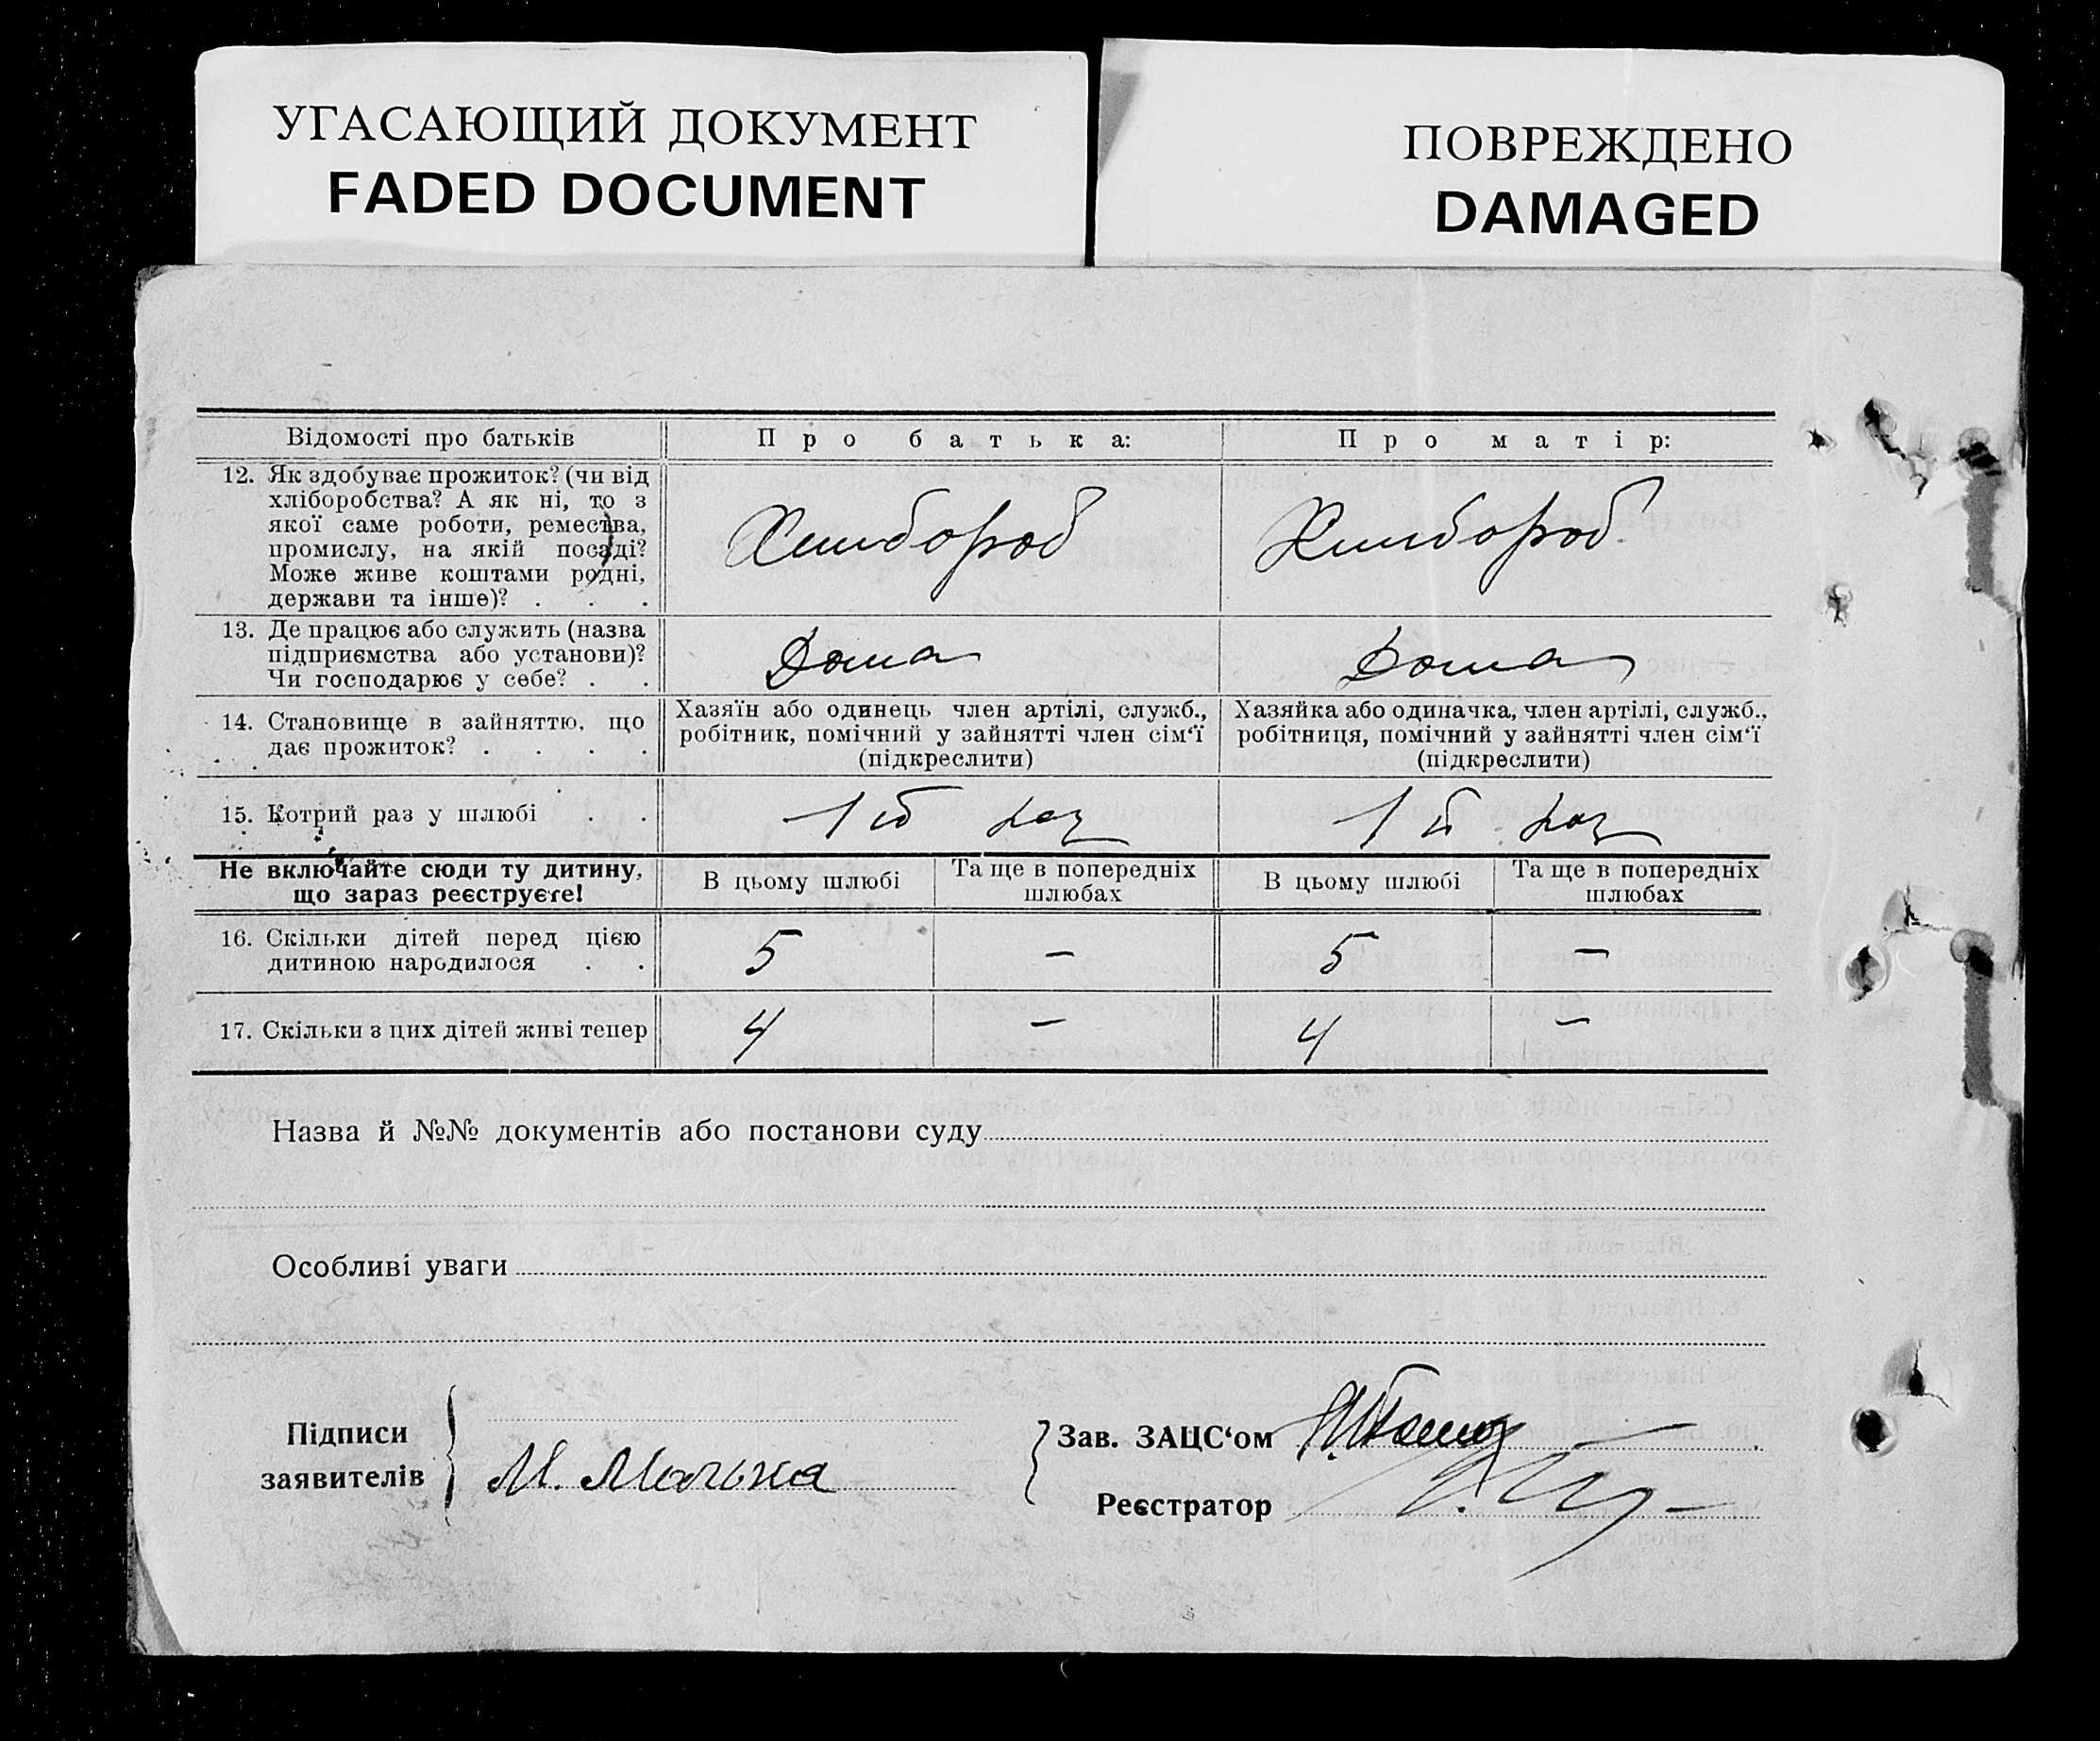 УГАСАЮЩИЙ ДОКУМЕНТ
FADED DOCUMENT
ПОВРЕЖДЕНО
DAMAGED
Відомості про батьків
Про батька:
Про матір:
12. Як здобуває прожиток? (чи від
хліборобства? А як ні, то з
якої саме роботи, ремества,
промислу, на якій посаді?
Може живе коштами родні,
держави та інше)? . . .
Хлибороб
Хлибороб
13. Де працює або служить (назва
підприємства або установи)?
Чи господарює у себе? . .
Дома
Дома
14. Становище в зайняттю, що
дає прожиток? . . . .
Хазяїн або одинець член артілі, служб.,
робітник, помічний у зайнятті член сім‘ї
(підкреслити)
Хазяйка або одиначка, член артілі, служб.,
робітниця, помічний у зайнятті член сім‘ї
(підкреслити)
15. Котрий раз у шлюбі . .
1й раз
1й раз
Не включайте сюди ту дитину,
що зараз реєструєте!
В цьому шлюбі
Та ще в попередніх
шлюбах
В цьому шлюбі
Та ще в попередніх
шлюбах
16. Скільки дітей перед цією
дитиною народилося . .
5
—
5
—
17. Скільки з цих дітей живі тепер
4
—
4
—
Назва й №№ документів або постанови суду
Особливі уваги
Підписи
заявителів
М.
Зав. ЗАЦС‘ом
Реєстратор